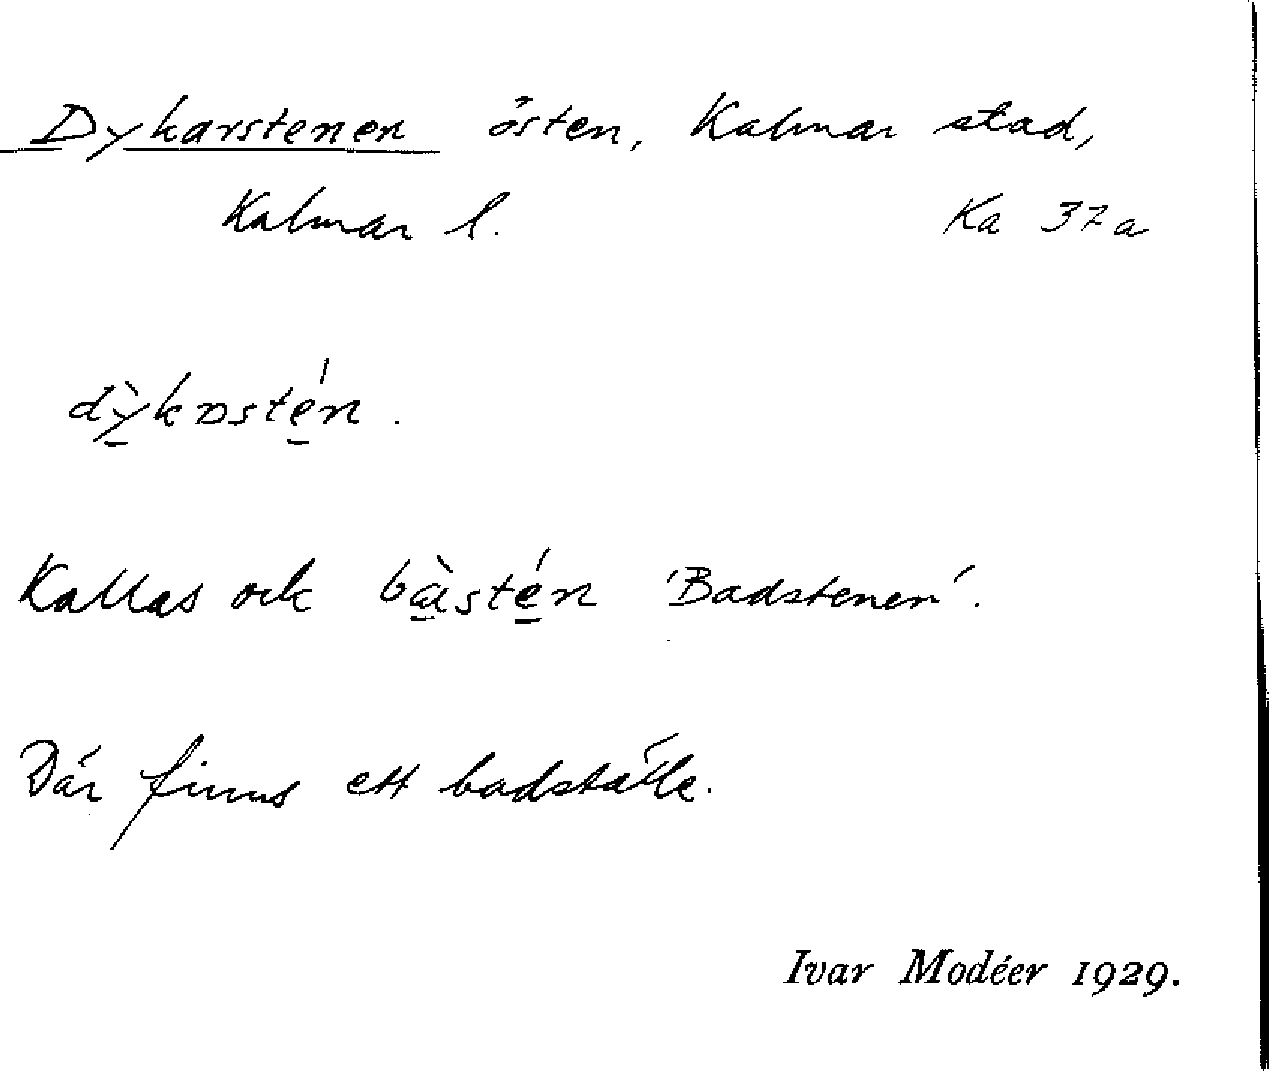 Dykarstenen östen, Kalmar stad,
Kalmar l. Ka 37a
dỳ̱kɒsté̱n.
Kallas ock bà̱sté̱n 'Badstenen'.
Där finns ett badställe.
Ivar Modéer 1929.